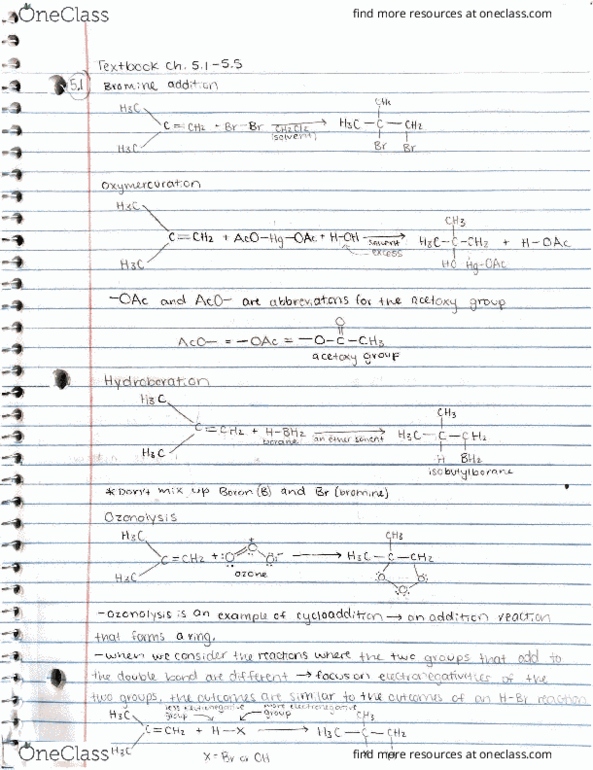 OneClass find more resources at oneclass.com
Textbook Ch. 5.1-5.5
5.1 Bromine addition
H3C CH3
C=CH2 + Br-Br CH2Cl2 (solvent) H3C-C-CH2
H3C Br Br
Oxymercuration
H3C CH3
C=CH2 + AcO-Hg-OAc + H-OH solvent excess H3C-C-CH2 + H-OAc
H3C HO Hg-OAc
-OAc and AcO- are abbreviations for the acetoxy group
O
AcO- = -OAc = -O-C-CH3
acetoxy group
Hydroboration
H3C CH3
C=CH2 + H-BH2 an ether solvent H3C-C-CH2
H3C borane H BH2
isobutylborane
*Don't mix up Boron (B) and Br (bromine)
Ozonolysis
H3C CH3
C=CH2 + :O O O:- H3C-C-CH2
H3C ozone O O O
-ozonolysis is an example of cycloaddition → an addition reaction
that forms a ring.
-when we consider the reactions where the two groups that add to
the double bond are different → focus on electronegativities of the
two groups, the outcomes are similar to the outcomes of an H-Br reaction
H3C less electronegative group more electronegative group CH3
C=CH2 + H-X H3C-C-CH2
H3C X=Br or OH
OneClass find more resources at oneclass.com